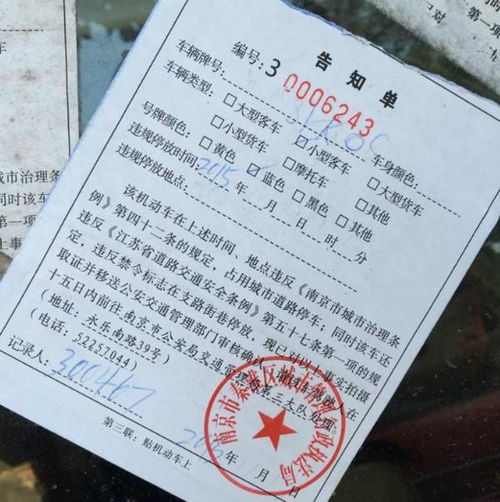 告知单
编号：3 0006243
车辆牌号：
车辆类型：□大型客车 □小型客车 车身颜色：
□小型货车 □摩托车 □大型货车
号牌颜色：□黄色 □蓝色 □黑色 □其他 □其他
违规停放时间：2015年 月 日 时 分
违规停放地点：
该机动车在上述时间、地点违反《南京市城市治理条
例》第四十二条的规定，占用城市道路停车；同时该车还
违反《江苏省道路交通安全条例》第五十七条第一项的规
定，违反禁令标志在支路街巷停放，现已对以上事实拍摄
取证并移送公安交通管理部门审核确认
十五日内前往南京市公安局交通管理 三大队处理。
（地址：永乐南路39号）
（电话：52257044）
记录人：300467
年 月 日
南京市秦淮区城市管理行政执法局
第三联：贴机动车上
城市治理条
同时该车
第一项